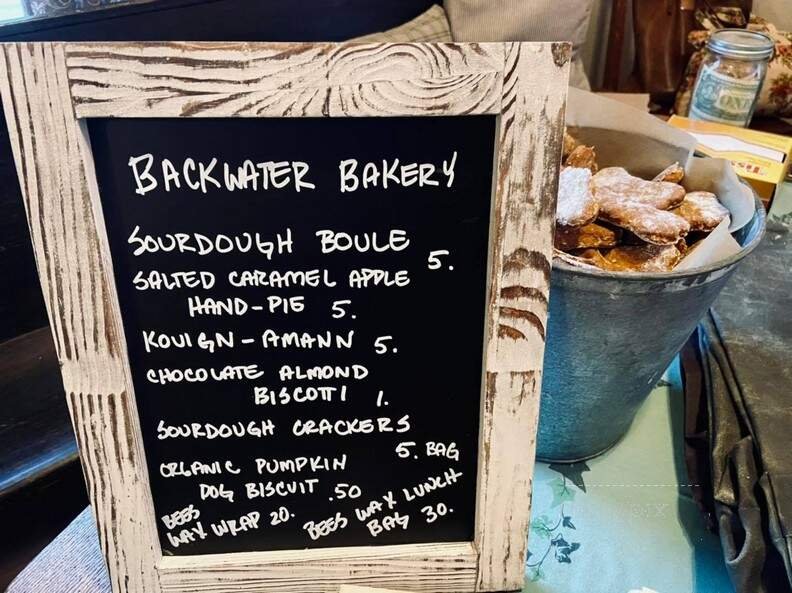 BACKWATER BAKERY
SOURDOUGH BOULE
5.
SALTED CARAMEL APPLE
HAND-PIE 5.
KOUIGN-AMANN 5.
CHOCOLATE ALMOND
BISCOTTI 1.
SOURDOUGH CRACKERS
5. BAG
ORGANIC PUMPKIN
DOG BISCUIT .50
BEES
WAX WRAP 20.
BEES WAX LUNCH
BAG 30.